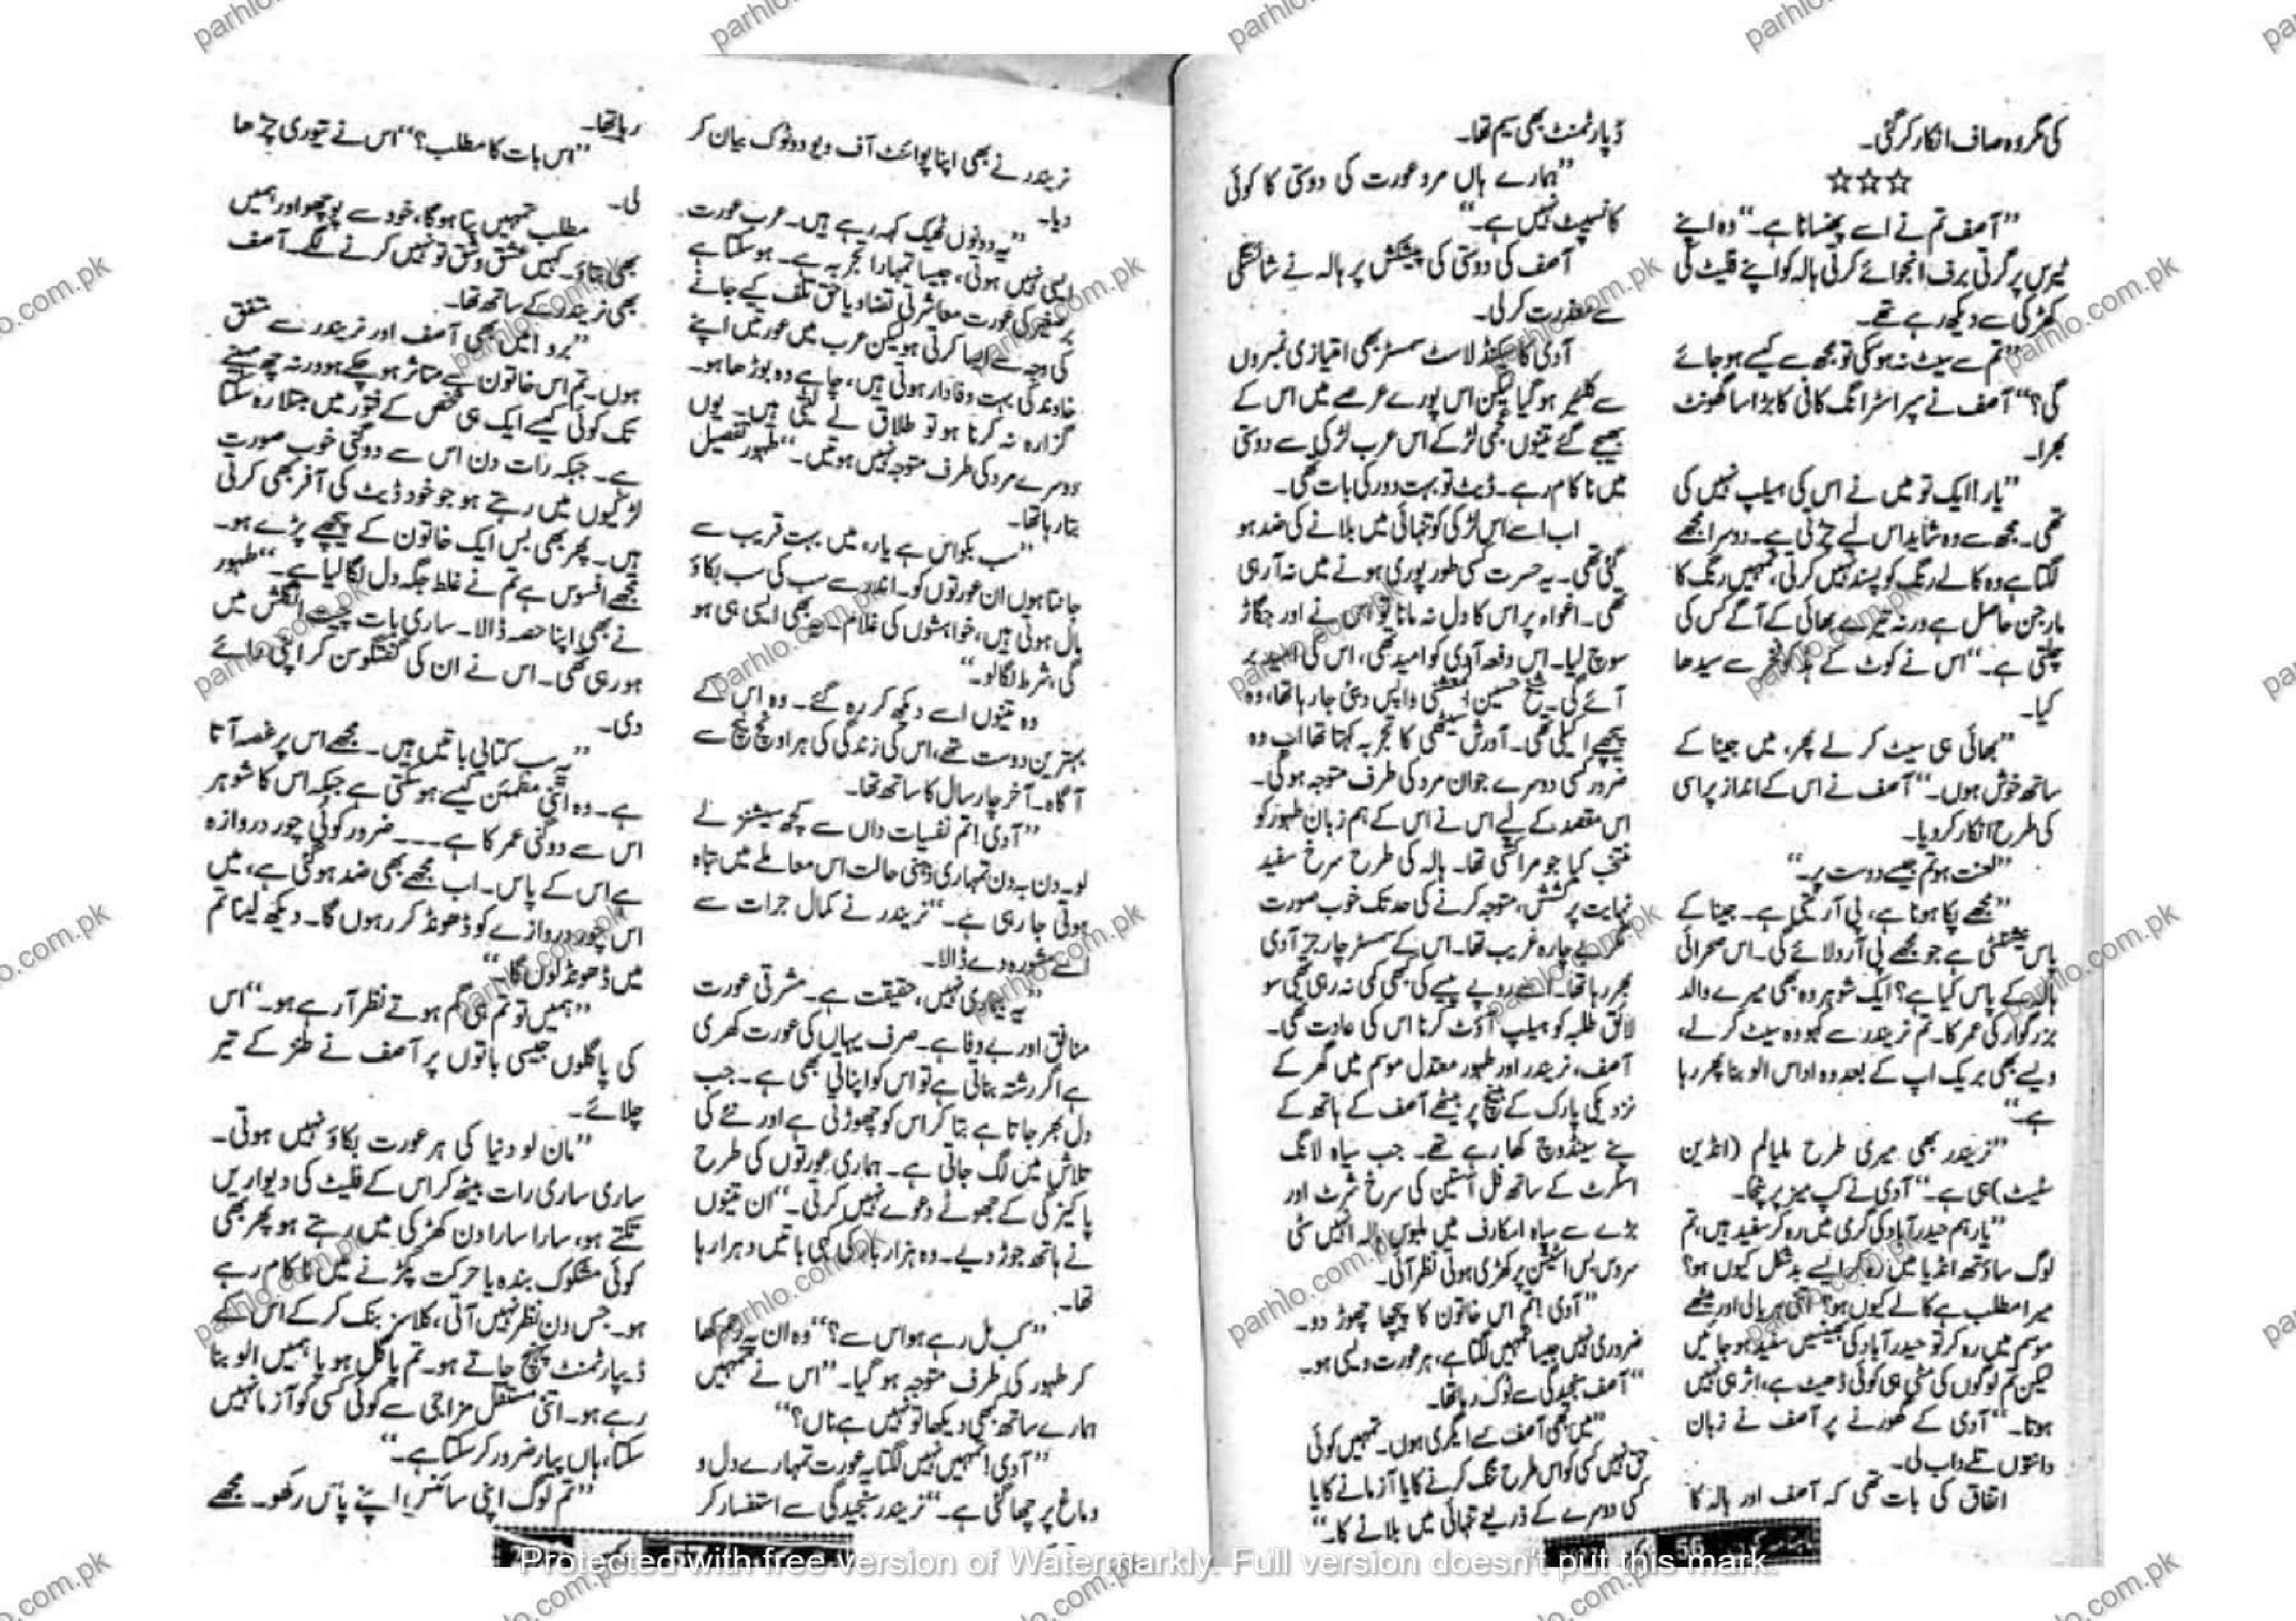 کی مگر وہ صاف انکار کر گئی۔
☆☆☆
”آصف تم نے اسے پھنسانا ہے۔“ وہ اپنے
ٹیرس پر گرتی برف انجوائے کرتی ہالہ کو اپنے فلیٹ کی
کھڑکی سے دیکھ رہے تھے۔
”تم سے سیٹ نہ ہو سکی تو مجھ سے کیسے ہو جائے
گی؟“ آصف نے سپر اسٹرانگ کافی کا بڑا سا گھونٹ
بھرا۔
”یار! ایک تو میں نے اس کی ہیلپ نہیں کی
تھی۔ مجھ سے وہ شاید اس لیے چڑتی ہے۔ دوسرا مجھے
لگتا ہے وہ کالے رنگ کو پسند نہیں کرتی، تمہیں رنگ کا
مارجن حاصل ہے ورنہ تیرے بھائی کے آگے کس کی
چلتی ہے۔“ اس نے کوٹ کے کالر کو فخر سے سیدھا
کیا۔
”بھائی ہی سیٹ کر لے پھر، میں جینا کے
ساتھ خوش ہوں۔“ آصف نے اس کے انداز پر اسی
کی طرح انکار کر دیا۔
”لعنت ہو تم جیسے دوست پر۔“
”مجھے پکا ہونا ہے، پی آر لینی ہے۔ جینا کے
پاس نیشنلٹی ہے جو مجھے پی آر دلائے گی۔ اس صحرائی
ہالہ کے پاس کیا ہے؟ ایک شوہر وہ بھی میرے والد
بزرگوار کی عمر کا۔ تم نریندر سے کہو وہ سیٹ کر لے،
ویسے بھی بریک اپ کے بعد وہ اداس الو بنا پھر رہا
ہے۔“
”نریندر بھی میری طرح ملیالم (انڈین
سٹیٹ) ہی ہے۔“ آدی نے کپ میز پر پٹخا۔
”یار ہم حیدرآباد کی گرمی میں رہ کر سفید ہیں، تم
لوگ ساؤتھ انڈیا میں رہ کر ایسے بدشکل کیوں ہو؟
میرا مطلب ہے کالے کیوں ہو؟ اتنی ہریالی اور میٹھے
موسم میں رہ کر تو حیدرآباد کی بھینسیں سفید ہو جائیں
لیکن تم لوگوں کی مٹی ہی کوئی ڈھیٹ ہے، اثر ہی نہیں
ہوتا۔“ آدی کے گھورنے پر آصف نے زبان
دانتوں تلے داب لی۔
اتفاق کی بات تھی کہ آصف اور ہالہ کا
ڈپارٹمنٹ بھی سیم تھا۔
”ہمارے ہاں مرد عورت کی دوستی کا کوئی
کانسیپٹ نہیں ہے۔“
آصف کی دوستی کی پیشکش پر ہالہ نے شائستگی
سے معذرت کر لی۔
آدی کا سیکنڈ لاسٹ سمسٹر بھی امتیازی نمبروں
سے کلیئر ہو گیا لیکن اس پورے عرصے میں اس کے
بھیجے گئے تینوں عجمی لڑکے اس عرب لڑکی سے دوستی
میں ناکام رہے۔ ڈیٹ تو بہت دور کی بات تھی۔
اب اسے اس لڑکی کو تنہائی میں بلانے کی ضد ہو
گئی تھی۔ یہ حسرت کسی طور پوری ہونے میں نہ آ رہی
تھی۔ اغواء پر اس کا دل نہ مانا تو اس نے اور جگاڑ
سوچ لیا۔ اس دفعہ آدی کو امید تھی، اس کی امید بر
آئے گی۔ شیخ حسین واپس دبئی جا رہا تھا، وہ
پیچھے اکیلی تھی۔ آدرش سیٹھی کا تجربہ کہتا تھا اب وہ
ضرور کسی دوسرے جوان مرد کی طرف متوجہ ہوگی۔
اس مقصد کے لیے اس نے اس کے ہم زبان ظہور کو
منتخب کیا جو مراکشی تھا۔ ہالہ کی طرح سرخ سفید
نہایت پرکشش، متوجہ کرنے کی حد تک خوب صورت
مگر بے چارہ غریب تھا۔ اس کے سمسٹر چارجز آدی
بھر رہا تھا۔ اسے روپے پیسے کی کبھی کمی نہ رہی تھی سو
لائق طلبہ کو ہیلپ آؤٹ کرنا اس کی عادت تھی۔
آصف، نریندر اور ظہور معتدل موسم میں گھر کے
نزدیکی پارک کے بینچ پر بیٹھے آصف کے ہاتھ کے
بنے سینڈوچ کھا رہے تھے۔ جب سیاہ لانگ
اسکرٹ کے ساتھ فل آستین کی سرخ شرٹ اور
بڑے سے سیاہ اسکارف میں ملبوس ہالہ انہیں سٹی
سروس بس اسٹیشن پر کھڑی ہوئی نظر آئی۔
”آدی! تم اس خاتون کا پیچھا چھوڑ دو۔
ضروری نہیں جیسا تمہیں لگتا ہے، ہر عورت ویسی ہو۔
“ آصف سنجیدگی سے ٹوک رہا تھا۔
”میں بھی آصف سے ایگری ہوں۔ تمہیں کوئی
حق نہیں کسی کو اس طرح تنگ کرنے کا یا آزمانے کا یا
کسی دوسرے کے ذریعے تنہائی میں بلانے کا۔“
56
نریندر نے بھی اپنا پوائنٹ آف ویو دو ٹوک بیان کر
دیا۔
”یہ دونوں ٹھیک کہہ رہے ہیں۔ عرب عورت
ایسی نہیں ہوتی، جیسا تمہارا تجربہ ہے۔ ہو سکتا ہے
برصغیر کی عورت معاشرتی تضاد یا حق تلف کیے جانے
کی وجہ سے ایسا کرتی ہو لیکن عرب میں عورتیں اپنے
خاوند کی بہت وفادار ہوتی ہیں، چاہے وہ بوڑھا ہو۔
گزارہ نہ کرنا ہو تو طلاق لے لیتی ہیں۔ یوں
دوسرے مرد کی طرف متوجہ نہیں ہوتیں۔“ ظہور تفصیل
بتا رہا تھا۔
”سب بکواس ہے یار، میں بہت قریب سے
جانتا ہوں ان عورتوں کو۔ اندر سے سب کی سب بکاؤ
مال ہوتی ہیں، خواہشوں کی غلام۔ یہ بھی ایسی ہی ہو
گی، شرط لگا لو۔“
وہ تینوں اسے دیکھ کر رہ گئے۔ وہ اس کے
بہترین دوست تھے، اس کی زندگی کی ہر اونچ نیچ سے
آگاہ۔ آخر چار سال کا ساتھ تھا۔
”آدی! تم نفسیات داں سے کچھ سیشنز لے
لو۔ دن بہ دن تمہاری ذہنی حالت اس معاملے میں تباہ
ہوتی جا رہی ہے۔“ نریندر نے کمال جرات سے
اسے مشورہ دے ڈالا۔
”یہ بیماری نہیں، حقیقت ہے۔ مشرقی عورت
منافق اور بے وفا ہے۔ صرف یہاں کی عورت کھری
ہے اگر رشتہ بناتی ہے تو اس کو اپناتی بھی ہے۔ جب
دل بھر جاتا ہے بتا کر اس کو چھوڑتی ہے اور نئے کی
تلاش میں لگ جاتی ہے۔ ہماری عورتوں کی طرح
پاکیزگی کے جھوٹے دعوے نہیں کرتی۔“ ان تینوں
نے ہاتھ جوڑ دیے۔ وہ ہزار بار کی کہی باتیں دہرا رہا
تھا۔
”کب مل رہے ہو اس سے؟“ وہ ان پہ رحم کھا
کر ظہور کی طرف متوجہ ہو گیا۔ ”اس نے تمہیں
ہمارے ساتھ کبھی دیکھا تو نہیں ہے ناں؟“
”آدی! تمہیں نہیں لگتا یہ عورت تمہارے دل و
دماغ پر چھا گئی ہے۔“ نریندر سنجیدگی سے استفسار کر
رہا تھا۔
”اس بات کا مطلب؟“ اس نے تیوری چڑھا
لی۔
مطلب تمہیں پتا ہوگا، خود سے پوچھو اور ہمیں
بھی بتاؤ۔ کہیں عشق وشق تو نہیں کرنے لگے۔ آصف
بھی نریندر کے ساتھ تھا۔
”برو! میں بھی آصف اور نریندر سے متفق
ہوں۔ تم اس خاتون سے متاثر ہو چکے ہو ورنہ چھ مہینے
تک کوئی کیسے ایک ہی شخص کے فتور میں مبتلا رہ سکتا
ہے۔ جبکہ رات دن اس سے دوگنی خوب صورت
لڑکیوں میں رہتے ہو جو خود ڈیٹ کی آفر بھی کرتی
ہیں۔ پھر بھی بس ایک خاتون کے پیچھے پڑے ہو۔
مجھے افسوس ہے تم نے غلط جگہ دل لگا لیا ہے۔“ ظہور
نے بھی اپنا حصہ ڈالا۔ ساری بات چیت انگلش میں
ہو رہی تھی۔ اس نے ان کی گفتگو سن کر اپنی رائے
دی۔
”یہ سب کتابی باتیں ہیں۔ مجھے اس پر غصہ آتا
ہے۔ وہ اتنی مطمئن کیسے ہو سکتی ہے جبکہ اس کا شوہر
اس سے دوگنی عمر کا ہے۔۔۔ ضرور کوئی چور دروازہ
ہے اس کے پاس۔ اب مجھے بھی ضد ہو گئی ہے، میں
اس چور دروازے کو ڈھونڈ کر رہوں گا۔ دیکھ لینا تم
میں ڈھونڈ لوں گا۔“
”ہمیں تو تم ہی گم ہوتے نظر آ رہے ہو۔“ اس
کی پاگلوں جیسی باتوں پر آصف نے طنز کے تیر
چلائے۔
”مان لو دنیا کی ہر عورت بکاؤ نہیں ہوتی۔
ساری ساری رات بیٹھ کر اس کے فلیٹ کی دیواریں
تکتے ہو، سارا سارا دن کھڑکی میں رہتے ہو پھر بھی
کوئی مشکوک بندہ یا حرکت پکڑنے میں ناکام رہے
ہو۔ جس دن نظر نہیں آتی، کلاسز بنک کر کے اس کے
ڈیپارٹمنٹ پہنچ جاتے ہو۔ تم پاگل ہو یا ہمیں الو بنا
رہے ہو۔ اتنی مستقل مزاجی سے کوئی کسی کو آزما نہیں
سکتا، ہاں پیار ضرور کر سکتا ہے۔“
”تم لوگ اپنی سائنس اپنے پاس رکھو۔ مجھے
Protected with free version of Watermarkly. Full version doesn't put this mark.
parhlo.com.pk